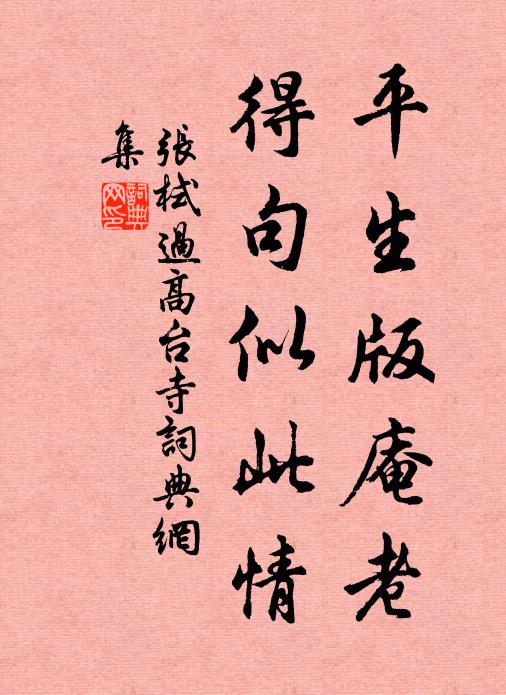 平生版庵老
得句似此情
張栻過高台寺詞典網
集
詞典
网印